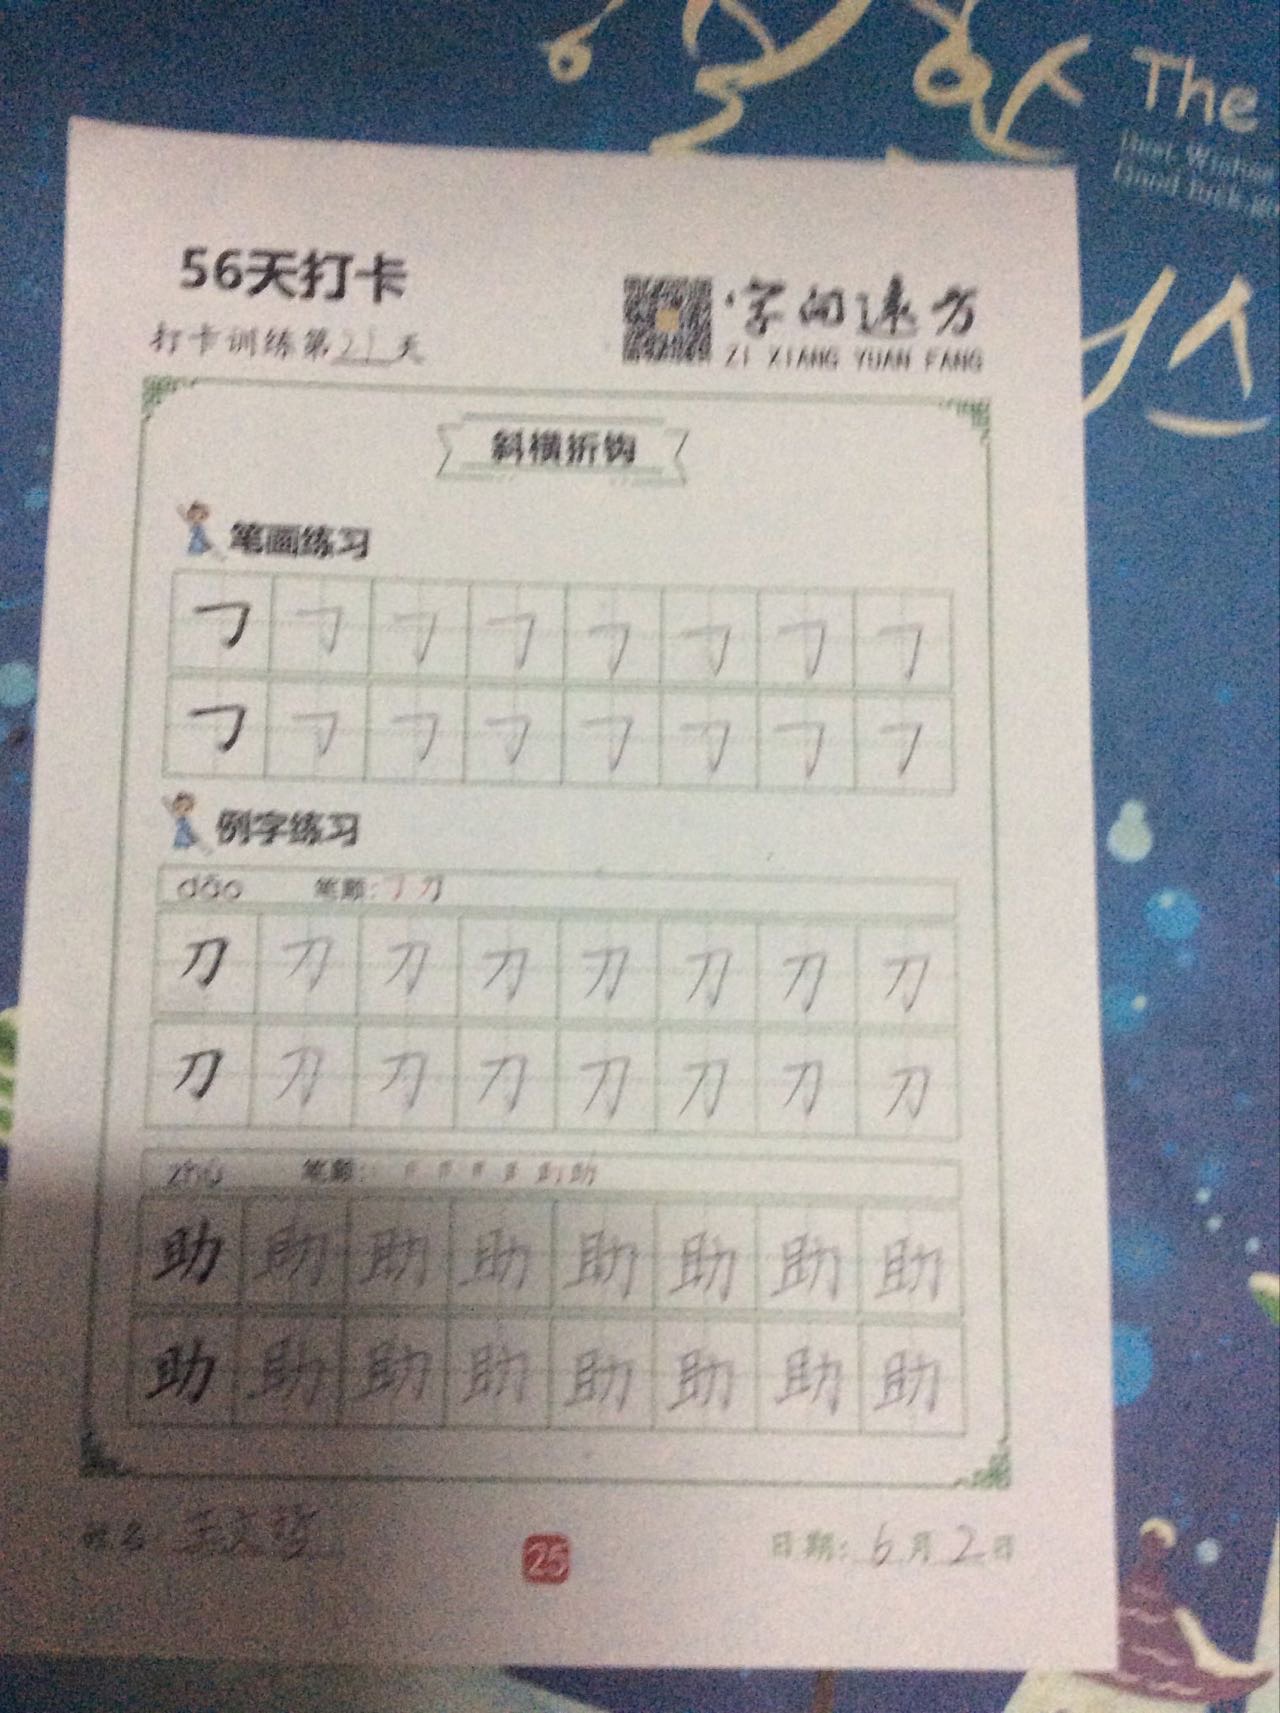 The
Best Wishes
Good luck
56天打卡
打卡训练第21天
字向远方
ZI XIANG YUAN FANG
斜横折钩
笔画练习
㇆ ㇆ ㇆ ㇆ ㇆ ㇆ ㇆ ㇆
㇆ ㇆ ㇆ ㇆ ㇆ ㇆ ㇆ ㇆
例字练习
dāo 笔顺: ㇆ 刀
刀 刀 刀 刀 刀 刀 刀 刀
刀 刀 刀 刀 刀 刀 刀 刀
zhù 笔顺: 助
助 助 助 助 助 助 助 助
助 助 助 助 助 助 助 助
姓名: 王文哲
25
日期: 6月2日